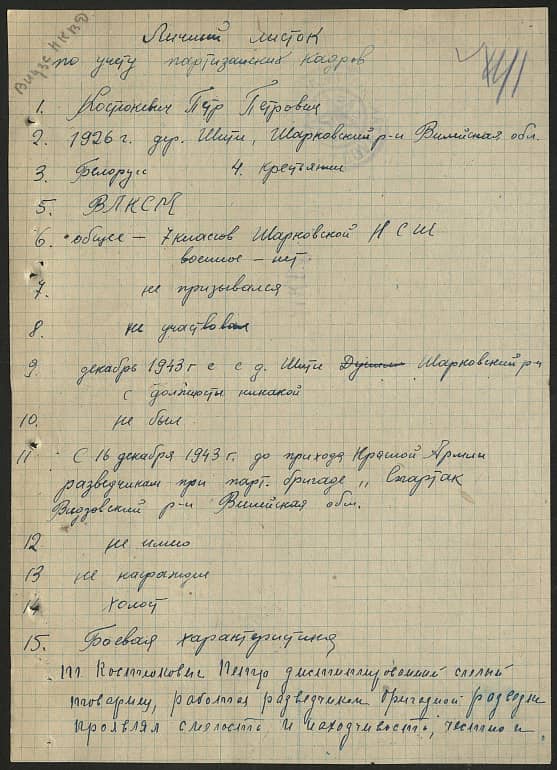 Видзс НКВД
Личный листок
по учету партизанских кадров
1. Костюкевич Пётр Петрович
2. 1926 г. дер. Шити, Шарковский р-н Вилейская обл.
3. Белорус 4. Крестьянин
5. ВЛКСМ
6. общее – 7 класов Шарковской НСШ
военное – нет
7. не призывался
8. не участвовал
9. декабрь 1943 г с с д. Шити Шарковский р-н
с должности никакой
10. не был
11 С 16 декабря 1943 г. до прихода Красной Армии
разведчиком при парт. бригаде „Спартак
Видзовский р-н Вилейская обл.
12 не имею
13 не награжден
14 холост
15. Боевая характеритика
т. Костюкович Петр дисциплированный смелый
товарищ, работая разведчиком бригадной разведки
проявлял смелость и находчивость, честно и